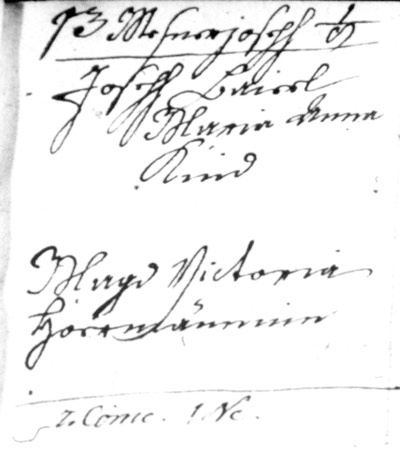 13 Mesnerjoseph
Joseph Baierl
Maria Anna
Kind
Magd Victoria
Hörrmännin
2. Comc. 1 Nc.